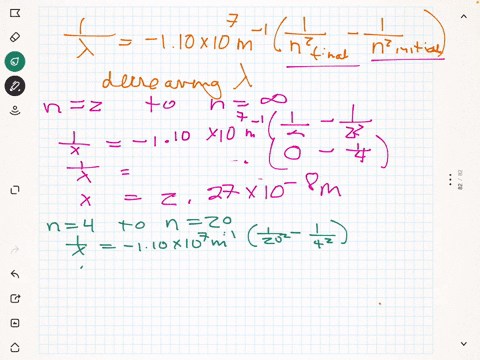 1/λ = -1.10 x 10^7 m^-1 (1/n^2 final - 1/n^2 initial)
decreasing λ
n = 2 to n = ∞
1/x = -1.10 x 10^7 m^-1 (1/∞ - 1/2^2)
1/x = (0 - 1/4)
x = 2.27 x 10^-8 m
n = 4 to n = 20
1/x = -1.10 x 10^7 m^-1 (1/20^2 - 1/4^2)